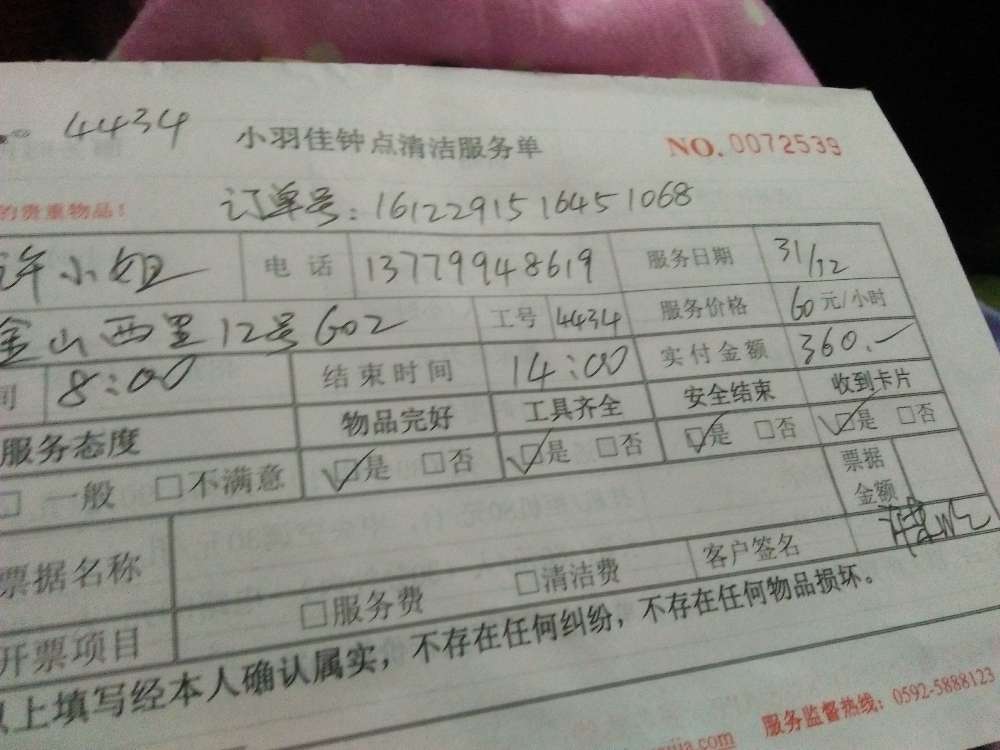 4434 小羽佳钟点清洁服务单 NO.0072539
的贵重物品！ 订单号：161229151645 1068
许小姐 电话 13779948619 服务日期 31/12
金山西里12号602 工号 4434 服务价格 60元/小时
间 8:00 结束时间 14:00 实付金额 360.-
服务态度 物品完好 工具齐全 安全结束 收到卡片
□一般 □不满意 □是 □否 □是 □否 □是 □否 □是 □否
票据名称 票据金额
开票项目 □服务费 □清洁费 客户签名
以上填写经本人确认属实，不存在任何纠纷，不存在任何物品损坏。
服务监督热线：0592-5888123
jia.com